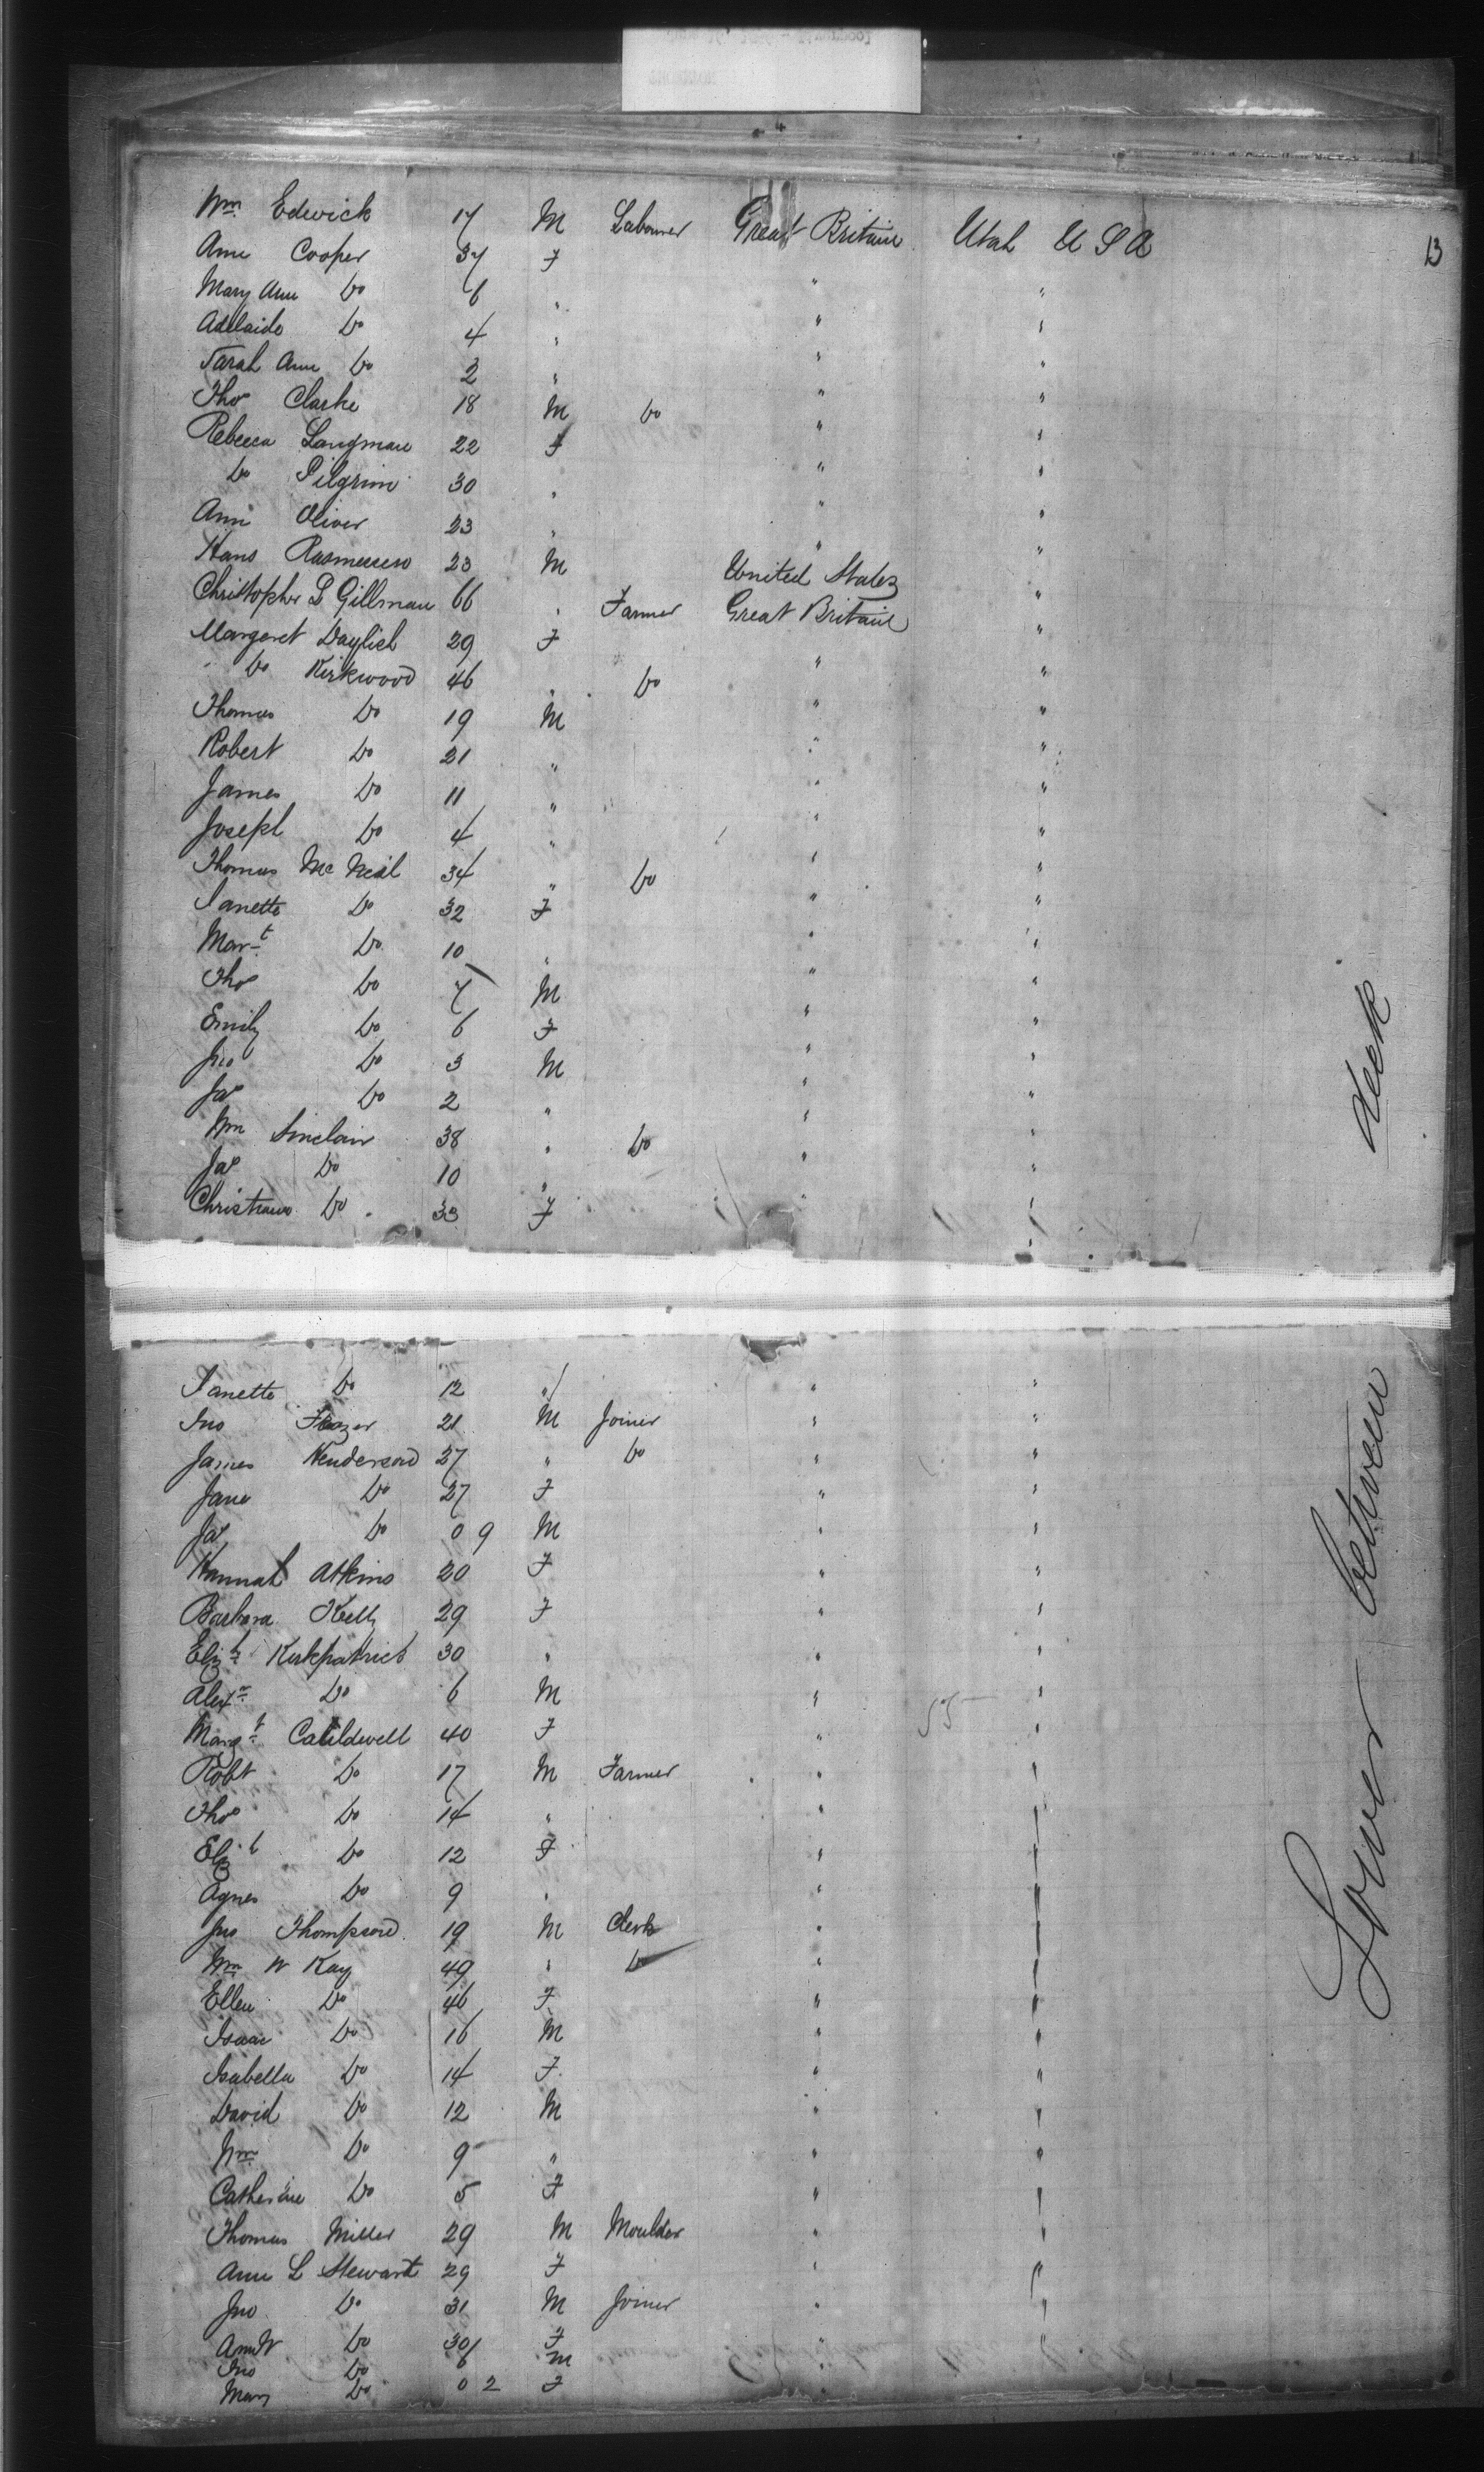 Wm Edwick 17 M Labourer Great Britain Utah U S A
13
Ann Cooper 37 F
Mary Ann Do 6 " " "
Adelaide Do 4 " " "
Sarah Ann Do 2 " " "
Thos Clarke 18 M Do " "
Rebecca Langman 22 F " "
Do Pilgrim 30 " " "
Ann Oliver 23 " " "
Hans Rasmussen 23 M United States "
Christopher L Gillman 66 " Farmer Great Britain "
Margaret Daylich 29 F " "
Do Kirkwood 46 " Do " "
Thomas Do 19 M " "
Robert Do 21 " " "
James Do 11 " " "
Joseph Do 4 " " "
Thomas Mc Neil 34 " Do " "
Janette Do 32 F " "
Mart Do 10 " " "
Thos Do 7 M " "
Emily Do 6 F " "
Jno Do 3 M " "
Jas Do 2 " " "
Wm Sinclair 38 " Do " "
Jas Do 10 " " "
Christiana Do 33 F " "
Janette Do 12 " " "
Jno Frazer 21 M Joiner " "
James Henderson 27 " Do " "
Jane Do 27 F " "
Jas Do 0 9 M " "
Hannah Atkins 20 F " "
Barbara Kelly 29 F " "
Elizth Kirkpatrick 30 " " "
Alexr Do 6 M " "
Margt Cauldwell 40 F " "
Robt Do 17 M Farmer " "
Thos Do 14 " " "
Elizt Do 12 F " "
Agnes Do 9 " " "
Jno Thompson 19 M Clerk " "
Wm W Kay 49 " Do " "
Ellen Do 46 F " "
Isaac Do 16 M " "
Isabella Do 14 F " "
David Do 12 M " "
Wm Do 9 " " "
Catherine Do 5 F " "
Thomas Miller 29 M Moulder " "
Ann L Stewart 29 F " "
Jno Do 31 M Joiner " "
Ann W Do 30 F " "
Jno Do 6 M
Mary Do 0 2 F
Lower between deck